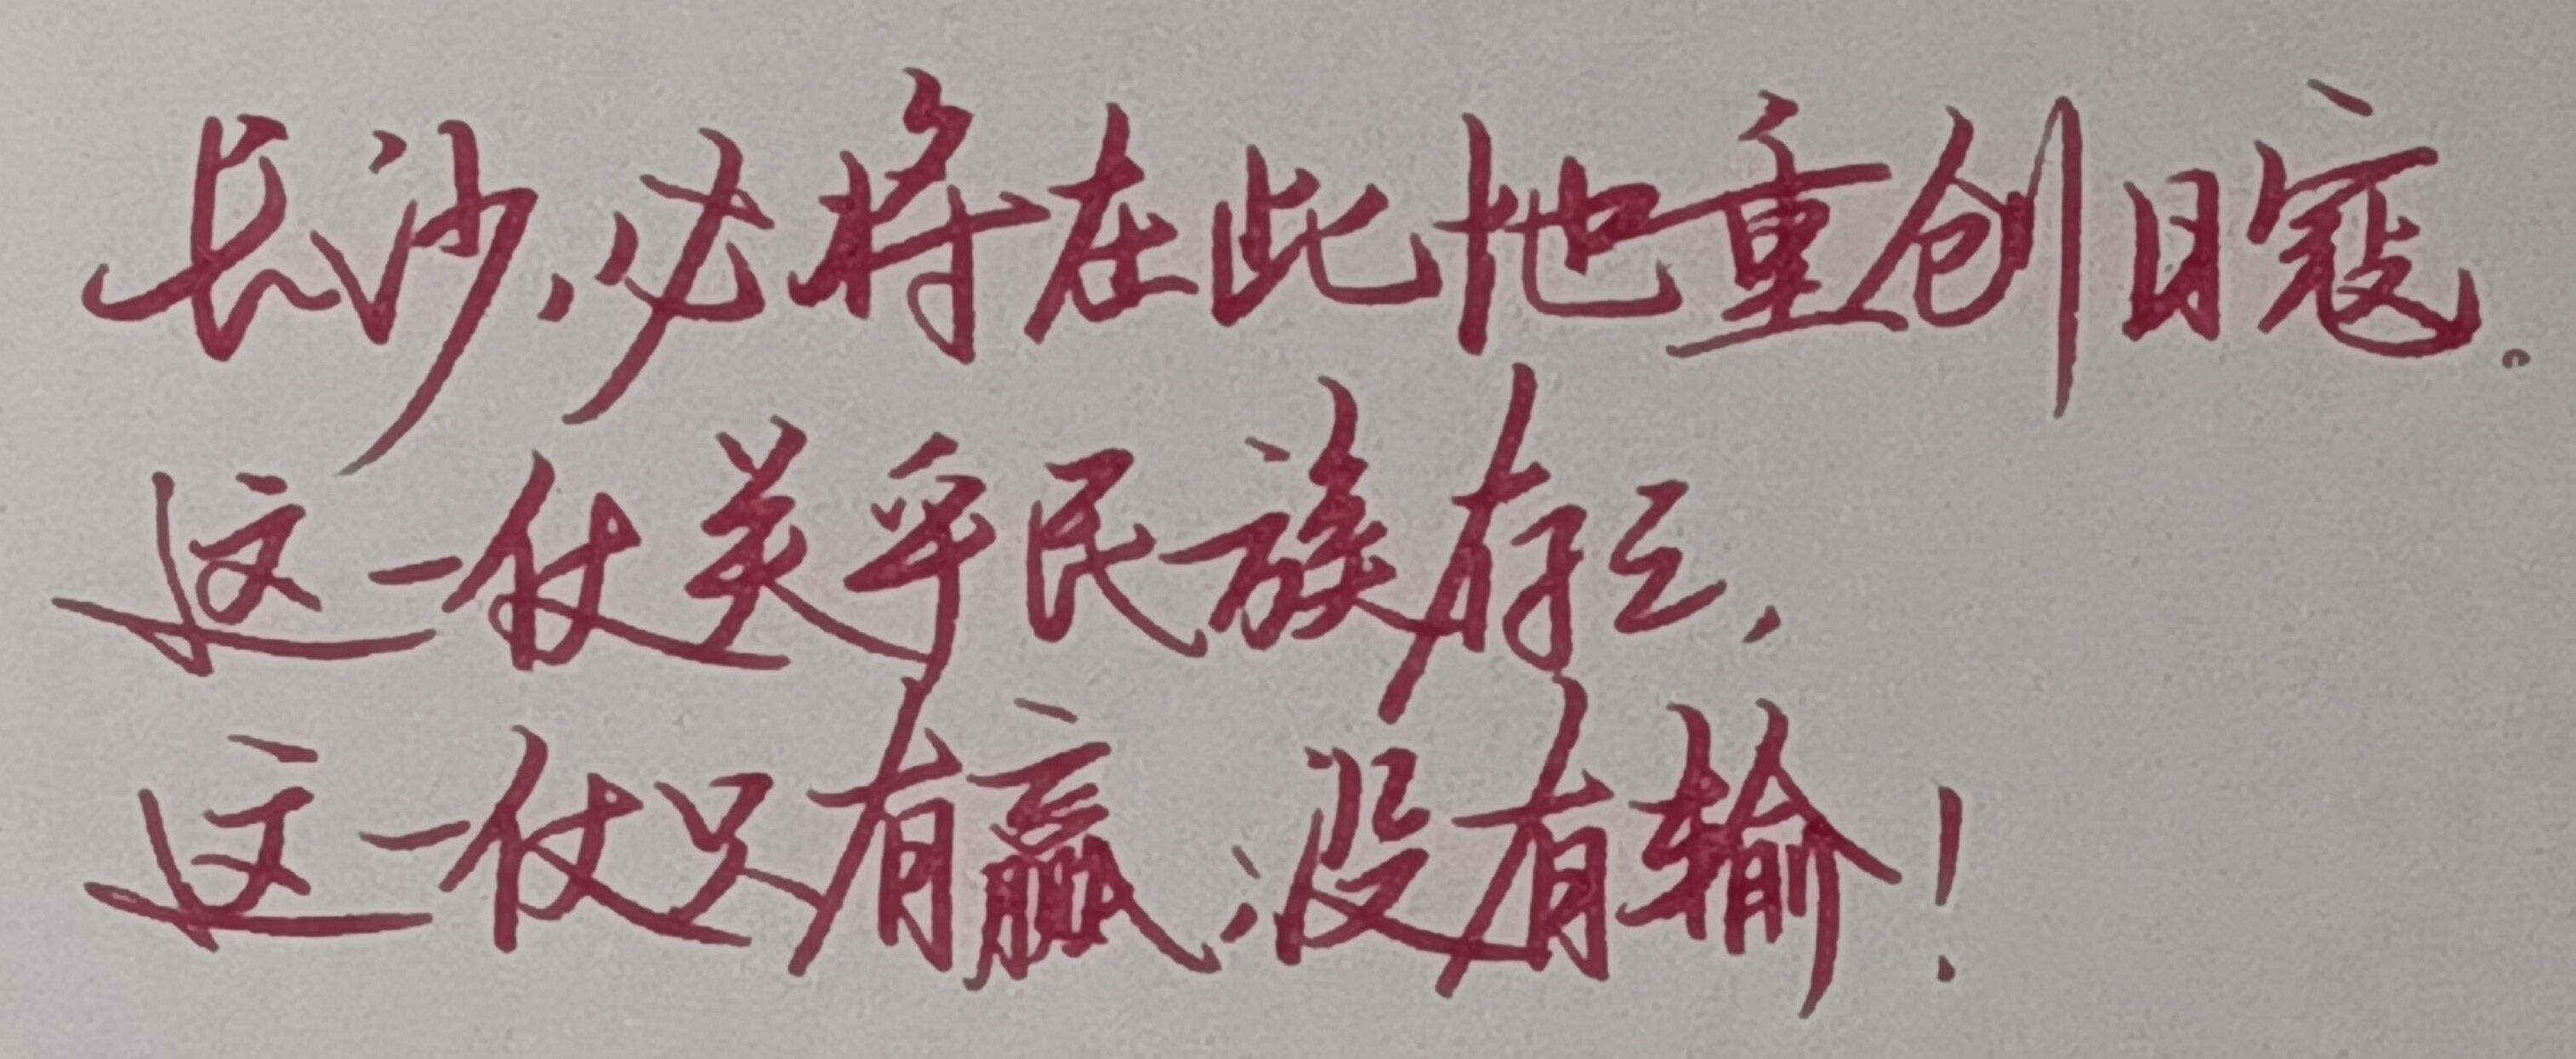 长沙,必将在此地重创日寇。
这一仗关乎民族存亡,
这一仗只有赢,没有输!